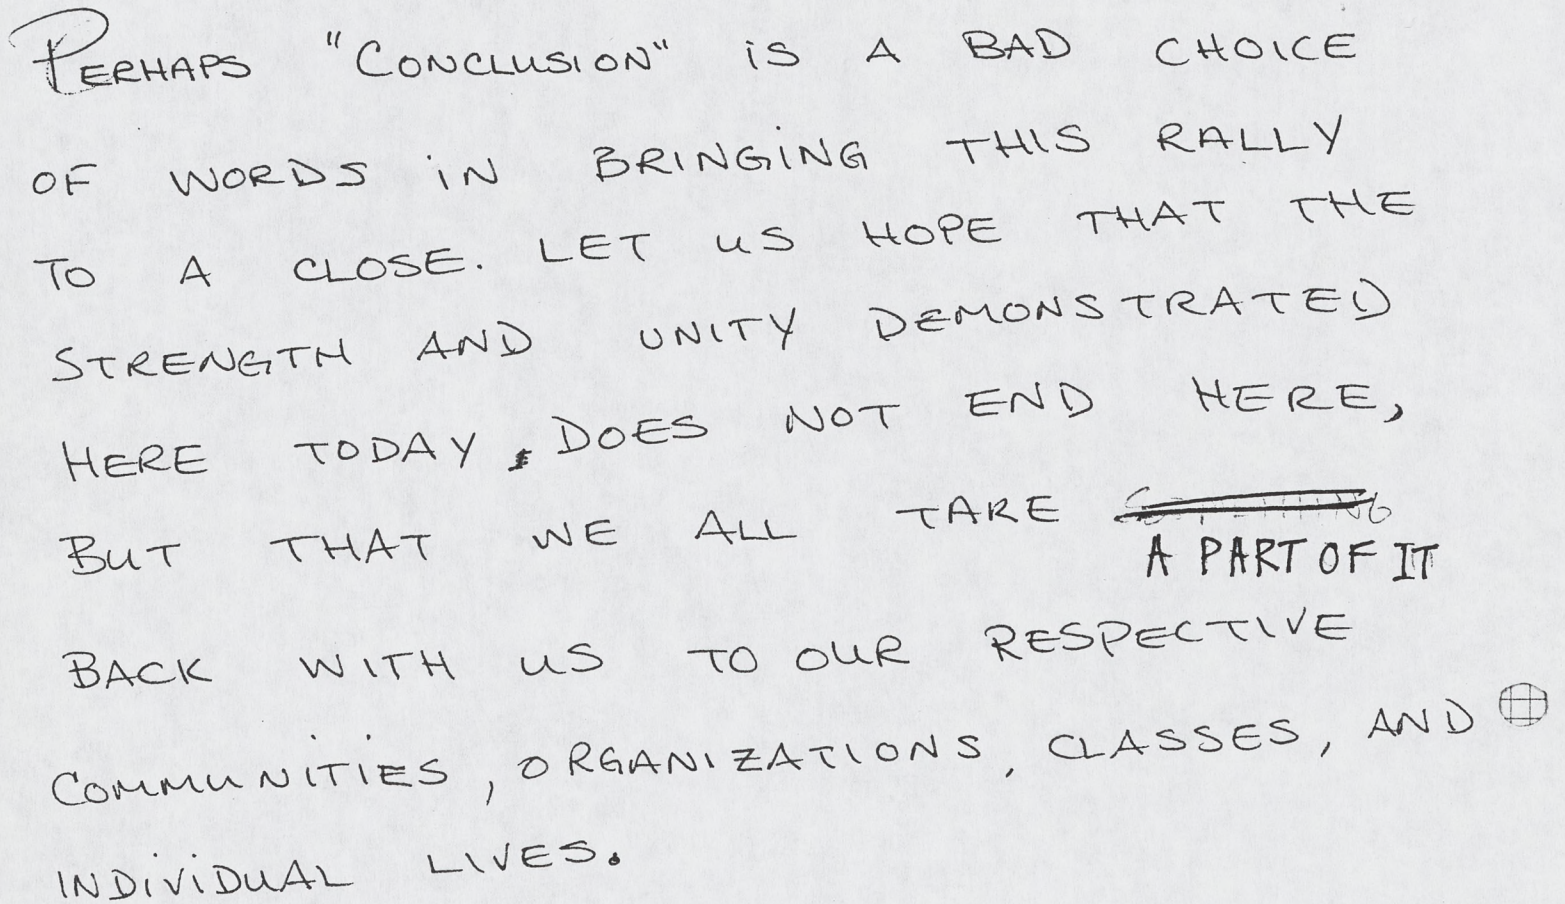 PERHAPS "CONCLUSION" IS A BAD CHOICE
OF WORDS IN BRINGING THIS RALLY
TO A CLOSE. LET US HOPE THAT THE
STRENGTH AND UNITY DEMONSTRATED
HERE TODAY, DOES NOT END HERE,
BUT THAT WE ALL TAKE
A PART OF IT
BACK WITH US TO OUR RESPECTIVE
COMMUNITIES, ORGANIZATIONS, CLASSES, AND
INDIVIDUAL LIVES.